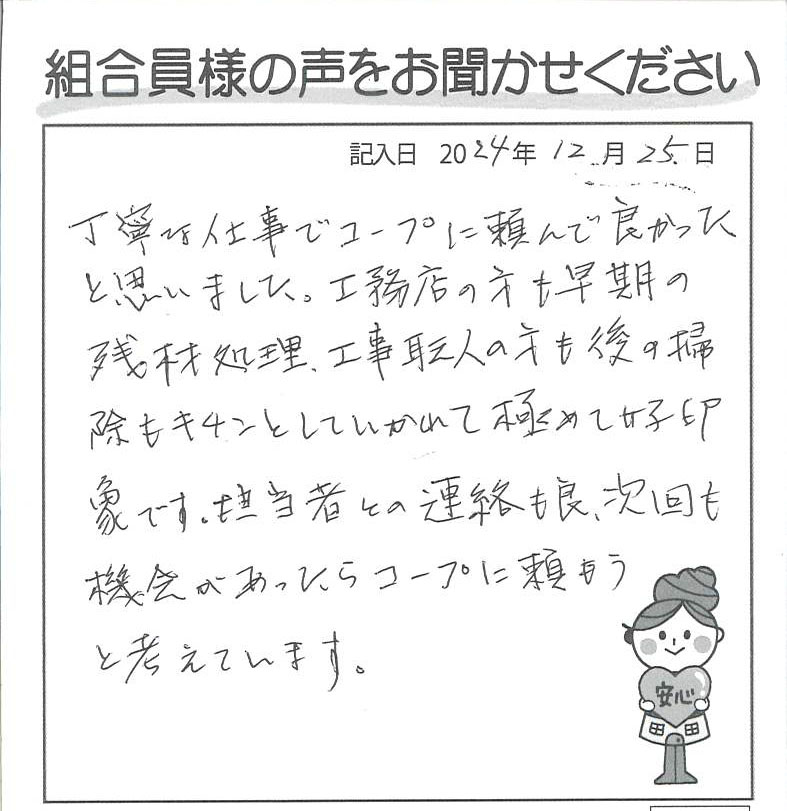 組合員様の声をお聞かせください
記入日 2024年 12月 25日
丁寧な仕事でコープに頼んで良かった
と思いました。工務店の方も早期の
残材処理、工事職人の方も後の掃
除もキチンとしていかれて極めて好印
象です。担当者との連絡も良、次回も
機会があったらコープに頼もう
と考えています。
安心